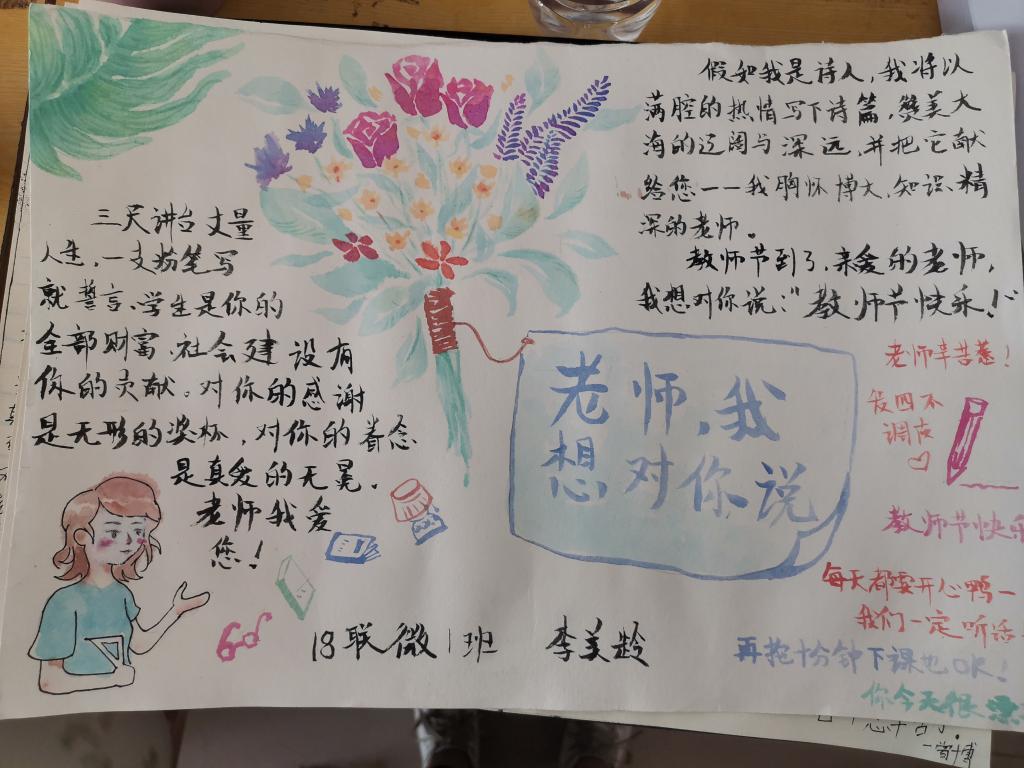 假如我是诗人,我将以
满腔的热情写下诗篇,赞美大
海的辽阔与深远,并把它献
给您——我胸怀博大,知识精
深的老师。
教师节到了,亲爱的老师,
我想对你说:"教师节快乐!"
三尺讲台丈量
人生,一支粉笔写
就誓言,学生是你的
全部财富,社会建设有
你的贡献。对你的感谢
是无形的奖杯,对你的眷恋
是真爱的无冕。
老师我爱
您!
老师,我
想对你说
老师辛苦惹!
没四不
调皮
教师节快乐
每天都要开心鸭一
我们一定听话
再拖十分钟下课也OK!
你今天很漂
18联微1班 李美龄